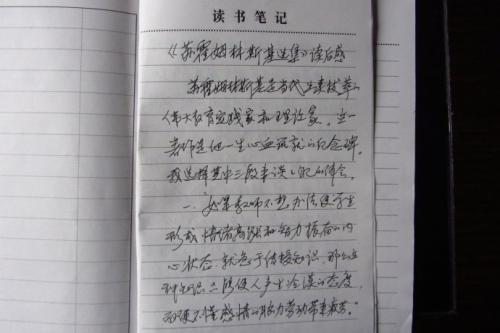 读书笔记
《苏霍姆林斯基选集》读后感
苏霍姆林斯基是当代出类拔萃的
伟大教育实践家和理论家。
是他一生心血筑就的纪念碑。
我选择其中三段来谈谈的体会。
一、如果教师不想办法使学生
形成情绪高涨和智力振奋的内
心状态,就急于传授知识,那么这
种知识只能使人产生冷漠的态度,
而使不懂感情的脑力劳动带来疲劳。"